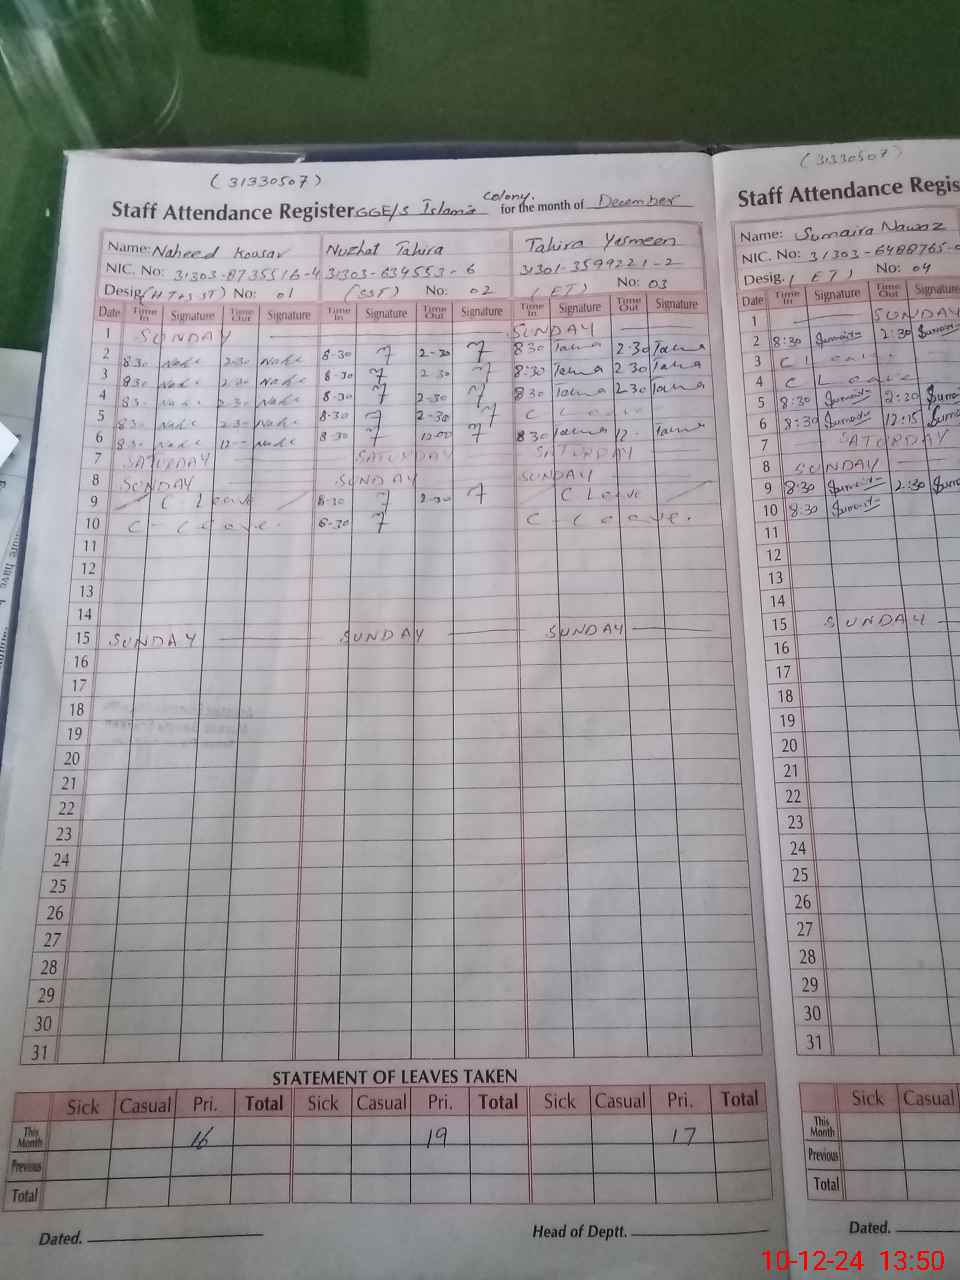 (31330507)
Staff Attendance Register GGE/S Islamia colony. for the month of December
Name: Naheed Kousar Nuzhat Tahira Tahira Yesmeen
NIC. No: 31303-8735516-4 31303-634553-6 31301-3599221-2
Desig. (HT+SST) No: 01 (SST) No: 02 (ET) No: 03
Date Time In Signature Time Out Signature Time In Signature Time Out Signature Time In Signature Time Out Signature
1 SUNDAY SUNDAY
2 8:30 2-30 8-30 2-30 8:30 2-30
3 8:30 2-30 8-30 2-30 8:30 2-30
4 8:30 2-30 8-30 2-30 8:30 2-30
5 8:30 2-30 8-30 2-30 C Leave
6 8:30 12-- 8-30 12-00 8:30 12-
7 SATURDAY SATURDAY SATURDAY
8 SUNDAY SUNDAY SUNDAY
9 C Leave 8-30 2-30 C Leave
10 C-Leave. 8-30 C-Leave.
11
12
13
14
15 SUNDAY SUNDAY SUNDAY
16
17
18
19
20
21
22
23
24
25
26
27
28
29
30
31
STATEMENT OF LEAVES TAKEN
Sick Casual Pri. Total Sick Casual Pri. Total Sick Casual Pri. Total
This Month 16 19 17
Previous
Total
Dated. Head of Deptt.
(31330507)
Staff Attendance Regis
Name: Sumaira Nawaz
NIC. No: 31303-6488765-
Desig. (ET) No: 04
Date Time In Signature Time Out Signature
1 SUNDAY
2 8:30 2:30
3 C Leave
4 C Leave
5 8:30 2:30
6 8:30 12:15
7 SATURDAY
8 SUNDAY
9 8:30 2:30
10 8:30
11
12
13
14
15 SUNDAY
16
17
18
19
20
21
22
23
24
25
26
27
28
29
30
31
Sick Casual
This Month
Previous
Total
Dated.
10-12-24 13:50